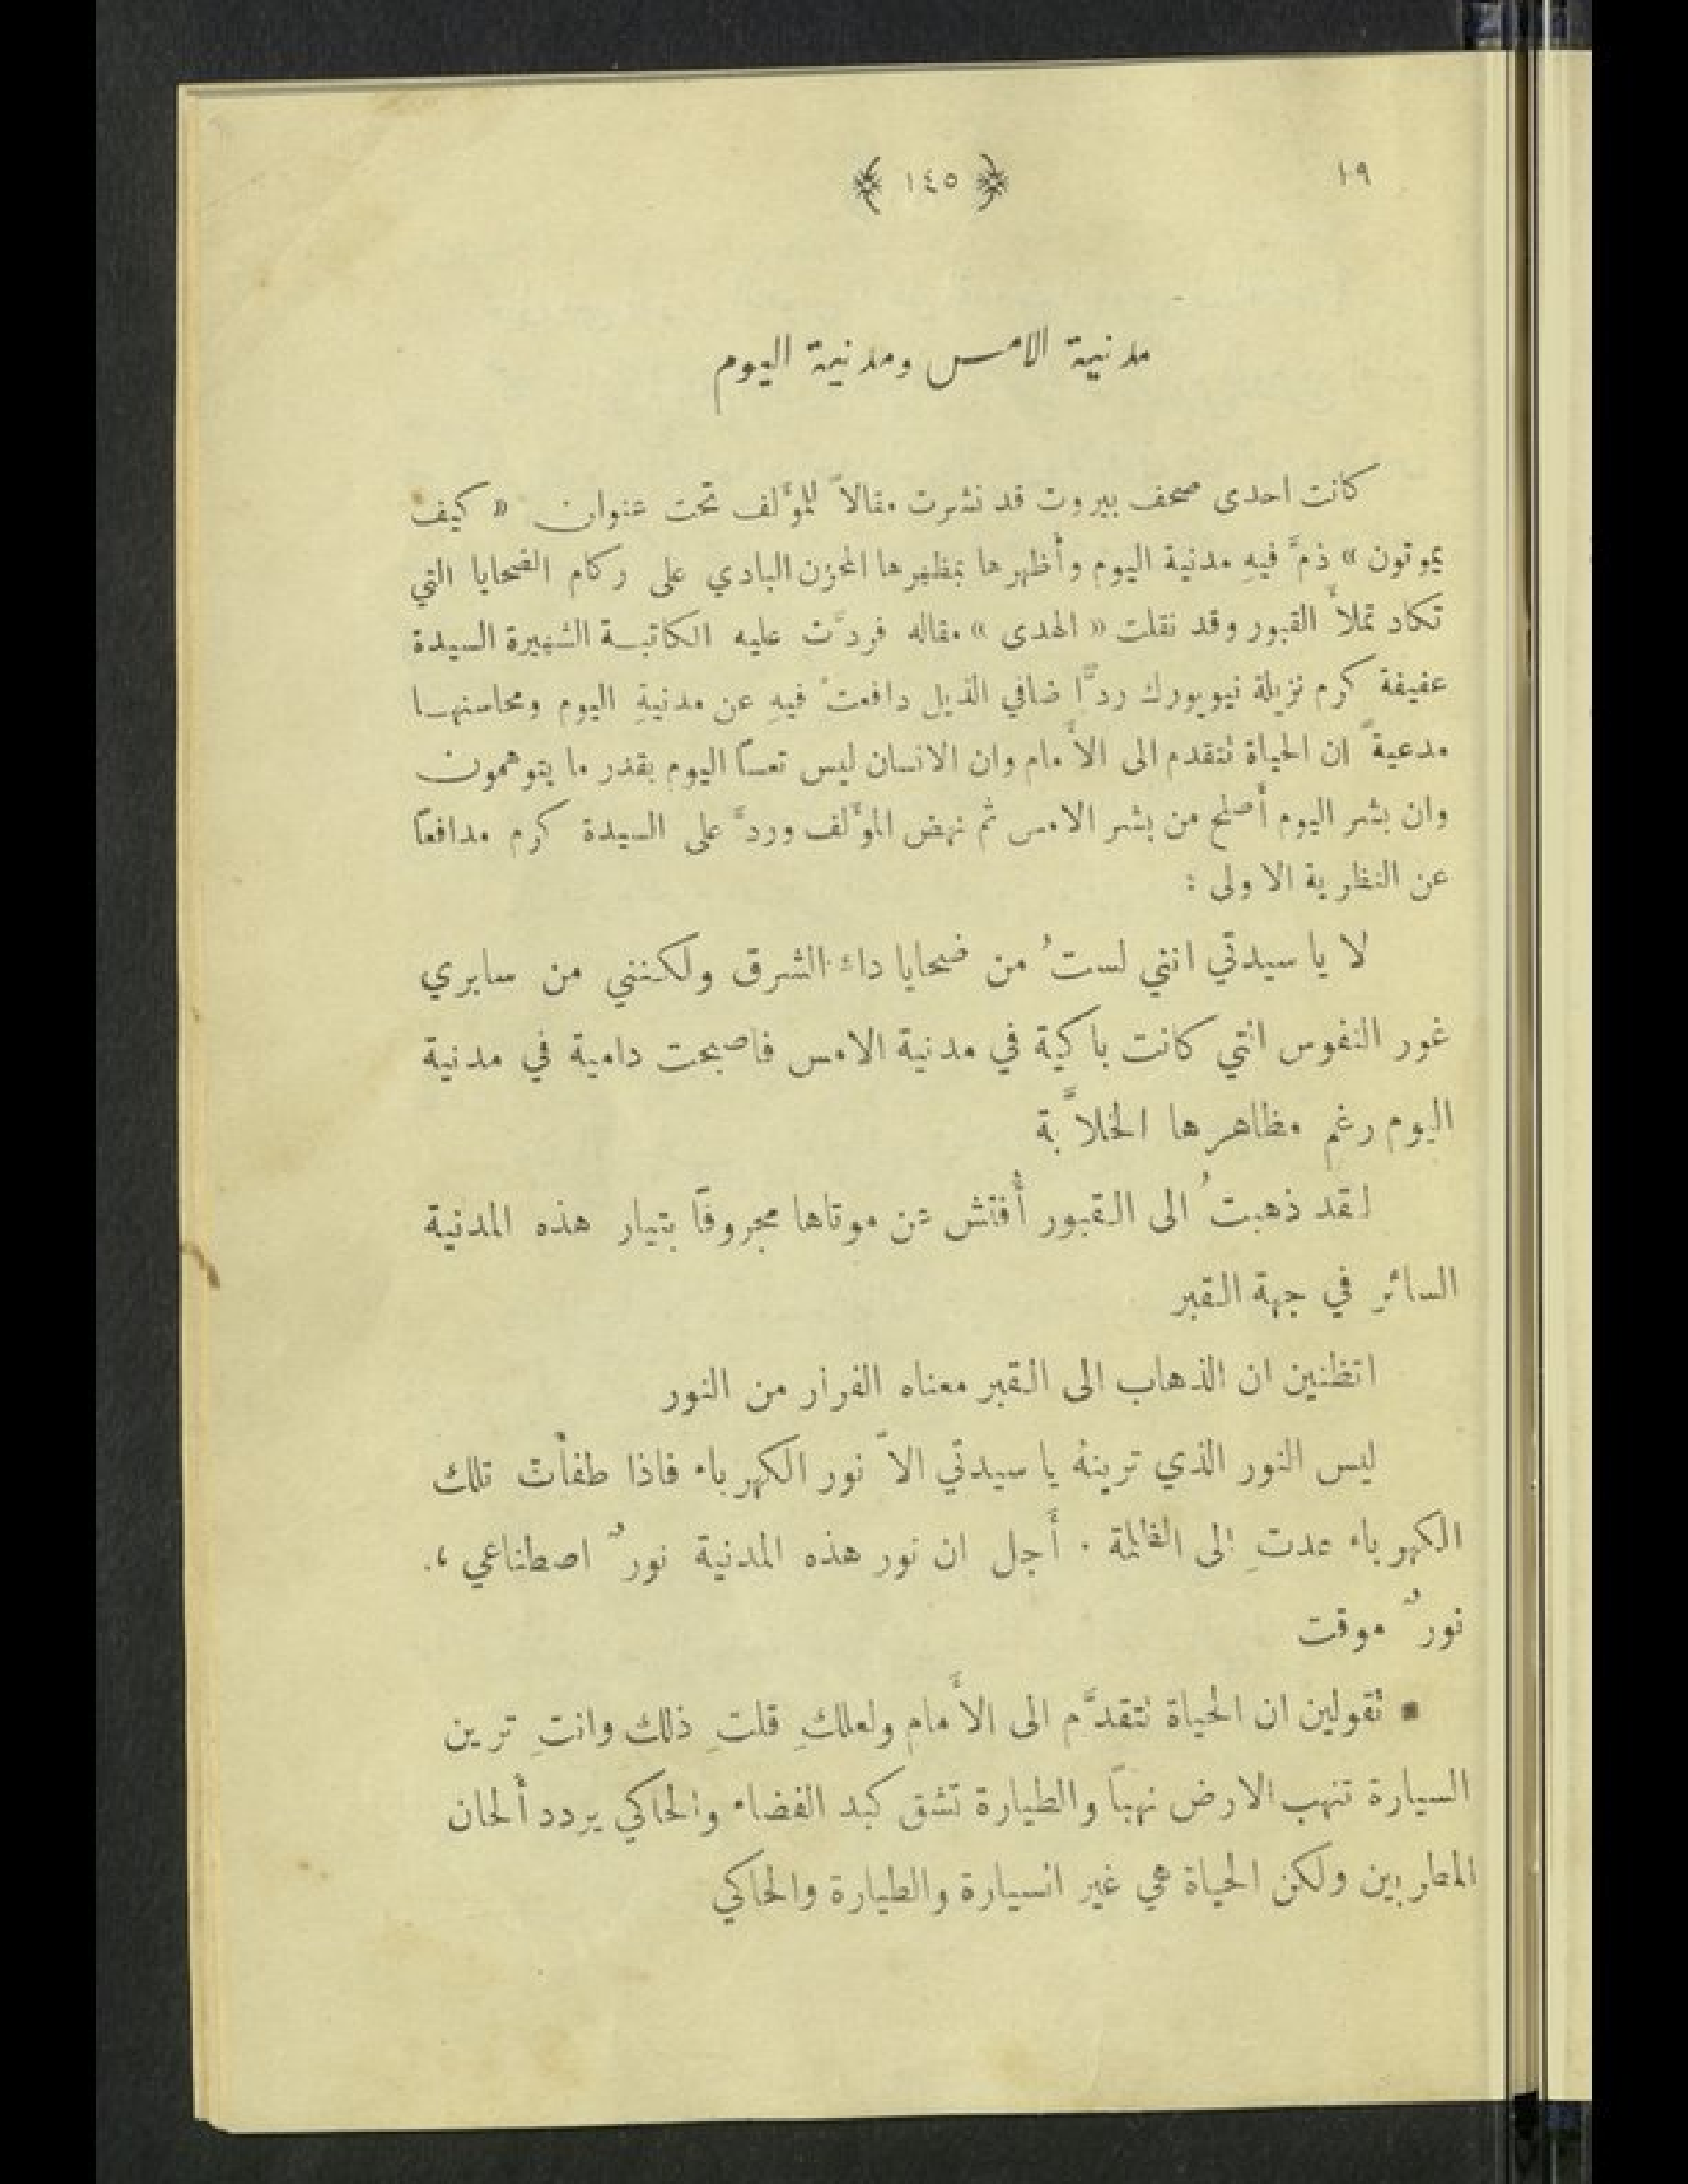 ١٩
١٤٥
مدنية الامس ومدنية اليوم
كانت احدى صحف بيروت قد نشرت مقالاً للمؤَلف تحت عنوان « كيف
يموتون » ذمَّ فيهِ مدنية اليوم وأَظهرها بمظهرها المحزن البادي على ركام الضحايا التي
تكاد تملأُ القبور وقد نقلت « الهدى » مقاله فردَّت عليه الكاتبة الشهيرة السيدة
عفيفة كرم نزيلة نيويورك ردًّا ضافي الذيل دافعتْ فيهِ عن مدنيةِ اليوم ومحاسنها
مدعيةً ان الحياة تتقدم الى الأَمام وان الانسان ليس تعسًا اليوم بقدر ما يتوهمون
وان بشر اليوم أَصلح من بشر الامس ثم نهض المؤَلف وردَّ على السيدة كرم مدافعًا
عن النظرية الاولى :
لا يا سيدتي انني لستُ من ضحايا داء الشرق ولكنني من سابري
غور النفوس التي كانت باكية في مدنية الامس فاصبحت دامية في مدنية
اليوم رغم مظاهرها الخلاَّبة
لقد ذهبتُ الى القبور أُفتش عن موتاها مجروفًا بتيار هذه المدنية
السائر في جهة القبر
اتظنين ان الذهاب الى القبر معناه الفرار من النور
ليس النور الذي ترينهُ يا سيدتي الاَّ نور الكهرباء فاذا طفأَت تلك
الكهرباء عدتِ الى الظلمة . أَجل ان نور هذه المدنية نورٌ اصطناعي ،.
نورٌ موقت
تقولين ان الحياة تتقدَّم الى الأَمام ولعلكِ قلتِ ذلك وانتِ ترين
السيارة تنهب الارض نهبًا والطيارة تشق كبد الفضاء والحاكي يردد أَلحان
المطربين ولكن الحياة هي غير السيارة والطيارة والحاكي